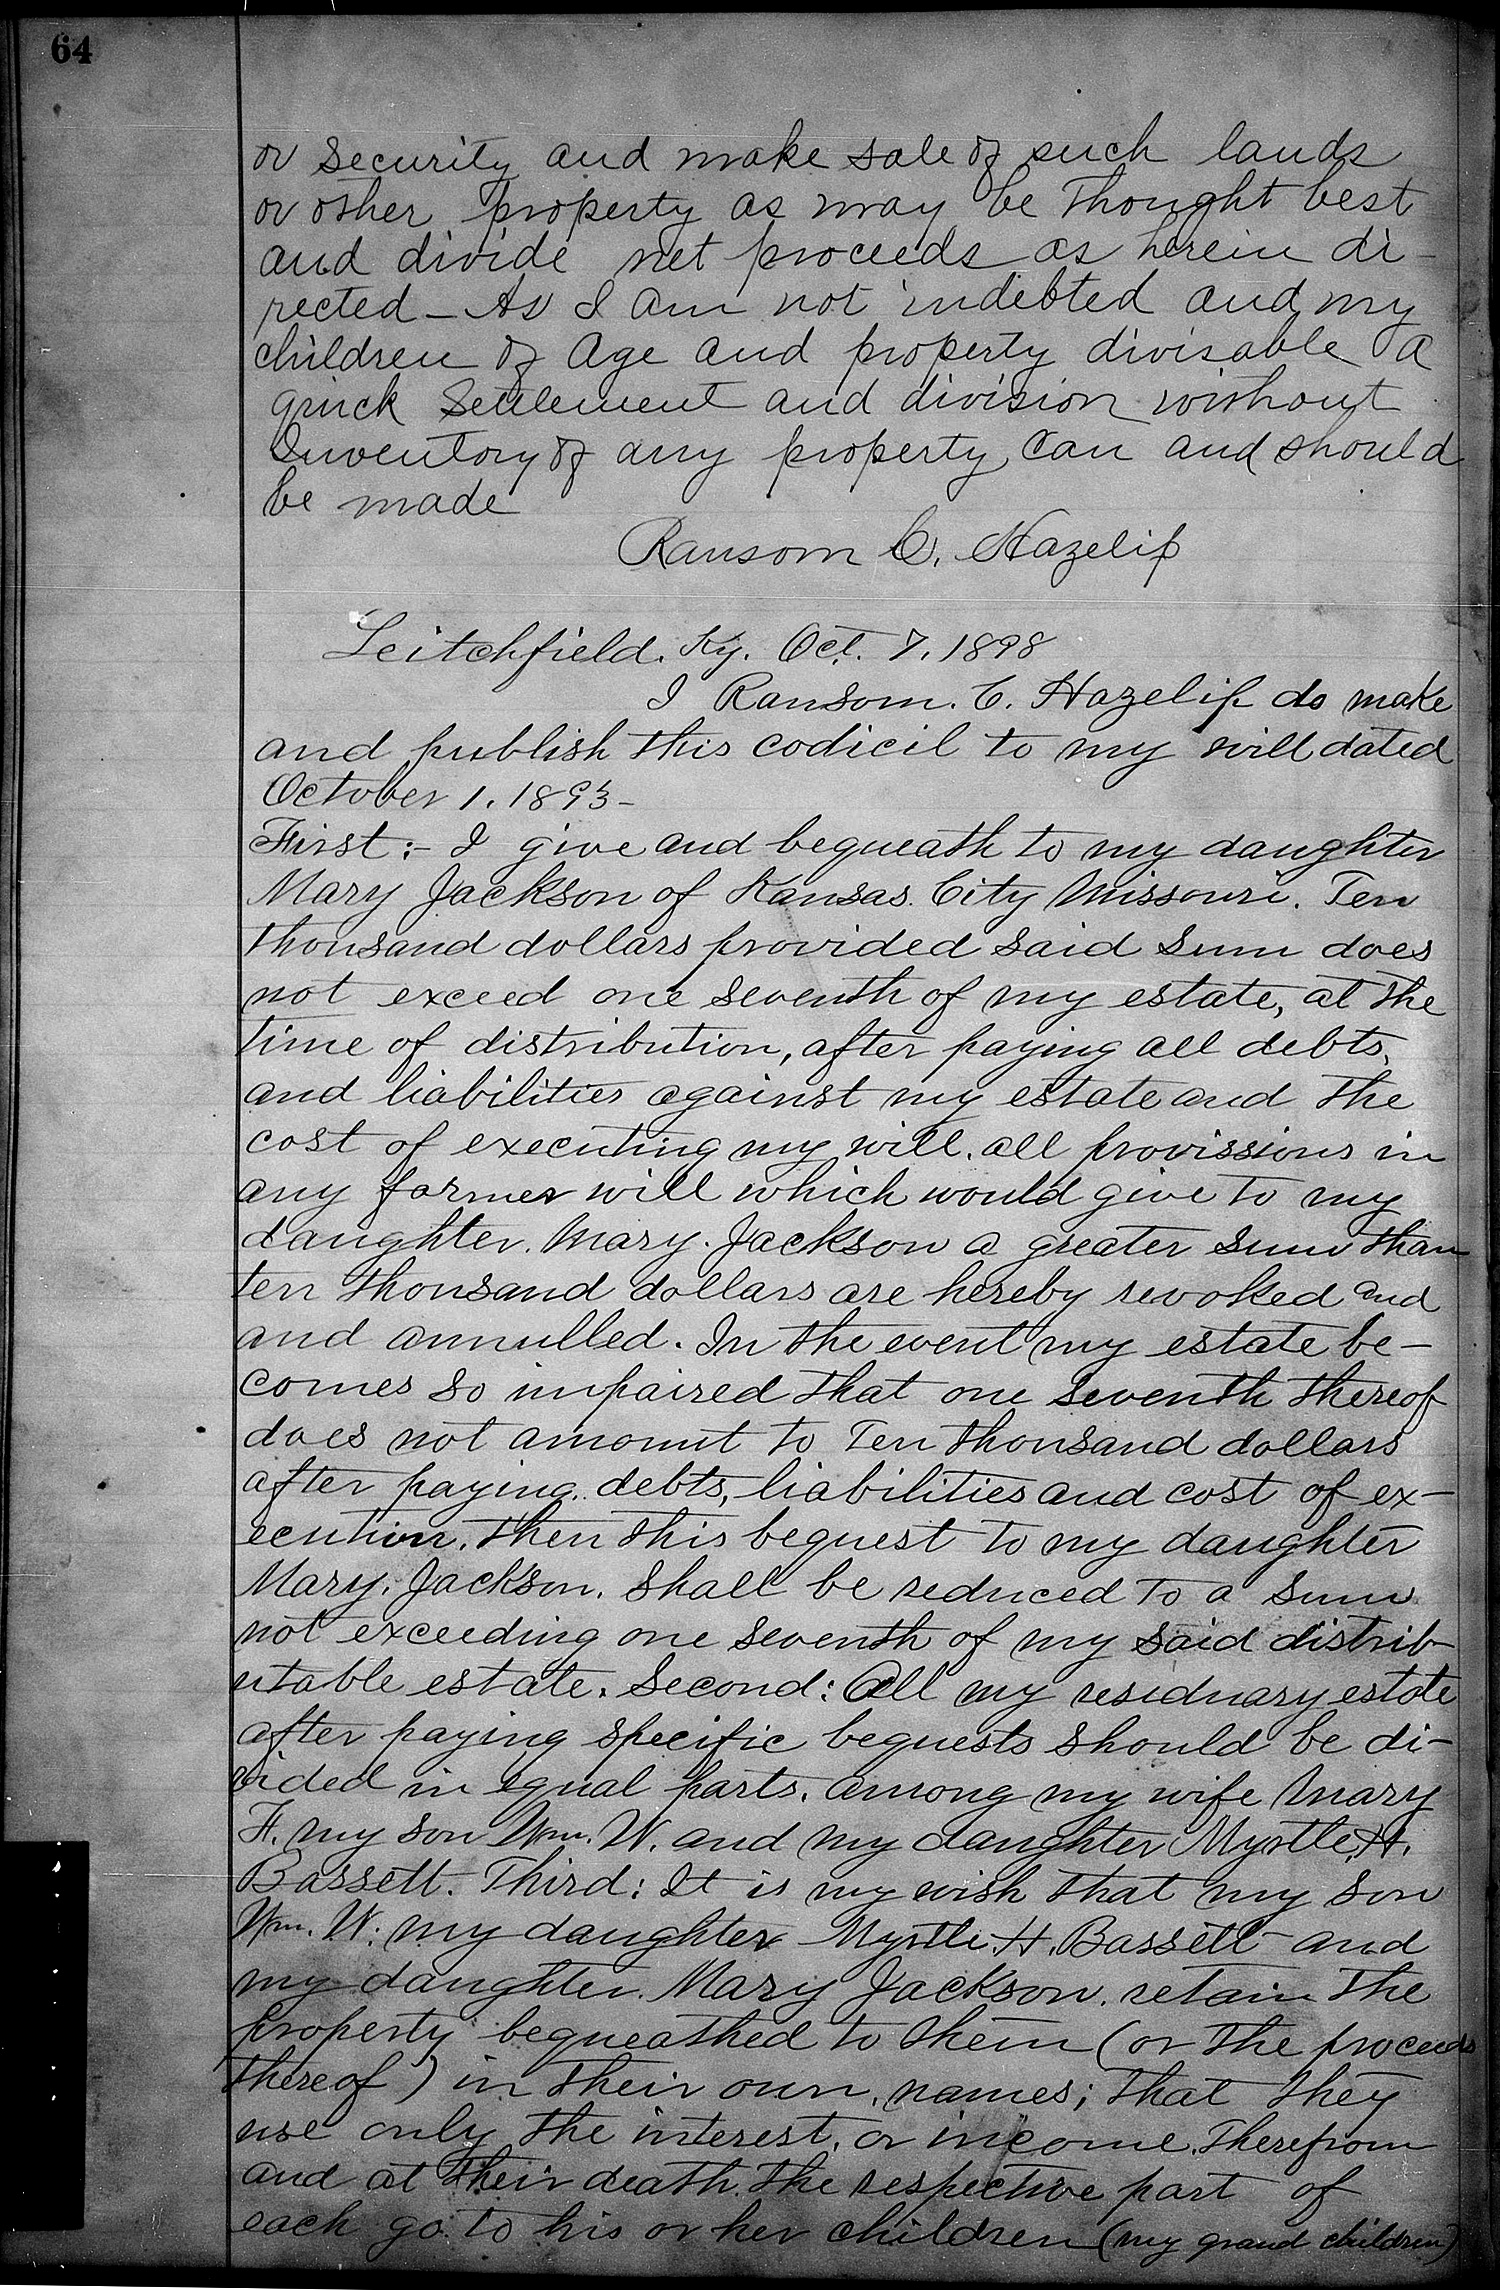 64
or Security and make sale of such lands
or other property as may be thought best
and divide net proceeds as herein di-
rected - As I am not indebted and my
children of Age and property divisable a
quick Settlement and division without
Inventory of any property, can and should
be made
Ransom C. Hazelip
Leitchfield. Ky. Oct. 7. 1898
I Ransom. C. Hazelip do make
and publish this codicil to my will dated
October 1. 1893-
First:- I give and bequeath to my daughter
Mary Jackson of Kansas. City Missouri. Ten
thousand dollars provided said sum does
not exceed one seventh of my estate, at the
time of distribution, after paying all debts,
and liabilities against my estate and the
cost of executing my will. all provissions in
any former will which would give to my
daughter. Mary. Jackson a greater sum than
ten thousand dollars are hereby revoked and
and annulled. In the event my estate be-
comes so impaired that one seventh thereof
does not amount to Ten thousand dollars
after paying. debts, liabilities and cost of ex-
ecution. then this bequest to my daughter
Mary. Jackson. shall be reduced to a sum
not exceeding one seventh of my said distrib-
utable estate. Second: All my residuary estate
after paying specific bequests should be di-
vided in equal parts. among my wife Mary
F. my son Wm. W. and my daughter Myrtle. H.
Bassett. Third: It is my wish that my son
Wm. W. my daughter Myrtle H. Bassett and
my daughter. Mary Jackson. retain the
property bequeathed to them (or the proceeds
thereof) in their own names; that they
use only the interest. or income. therefrom
and at their death. the respective part of
each go to his or her children (my grand children)